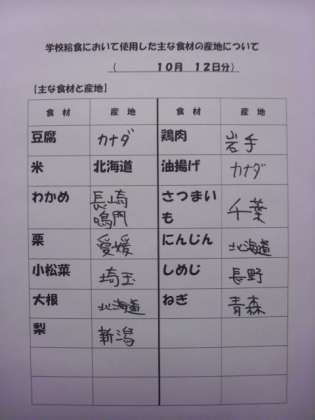 学校給食において使用した主な食材の産地について
（　　　１０月　１２日分）
【主な食材と産地】
食　材　産　地　食　材　産　地
豆腐　カナダ　鶏肉　岩手
米　北海道　油揚げ　カナダ
わかめ　長崎　さつまい　千葉
鳴門　も
栗　愛媛　にんじん　北海道
小松菜　埼玉　しめじ　長野
大根　北海道　ねぎ　青森
梨　新潟